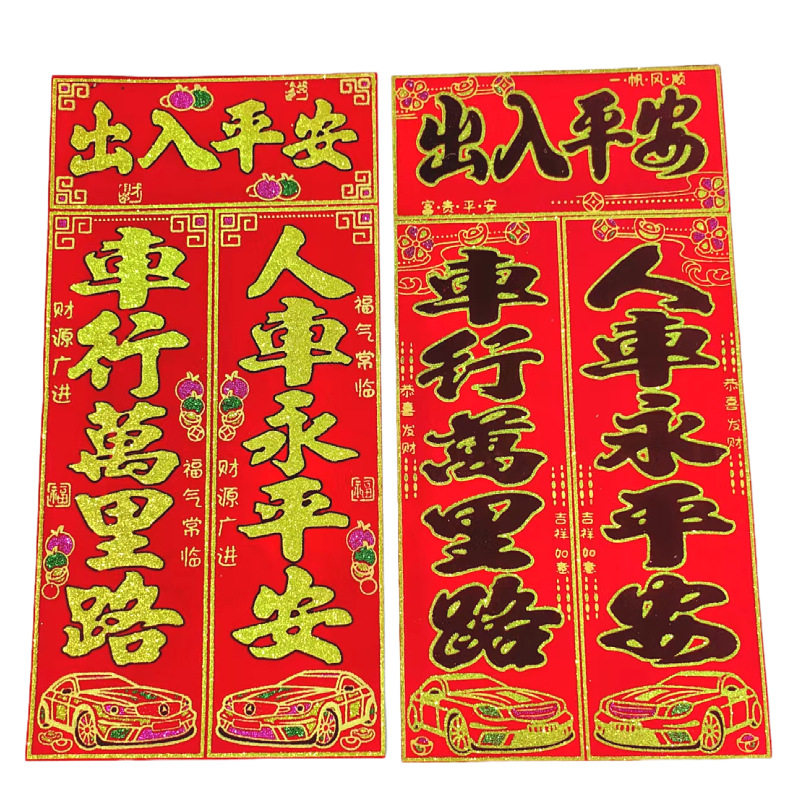 出入平安
财
車行萬里路
人車永平安
财源广进
福气常临
福气常临
财源广进
福
福
一·帆·风·顺
出入平安
富·贵·平·安
車行萬里路
人車永平安
恭喜发财
恭喜发财
吉祥如意
吉祥如意